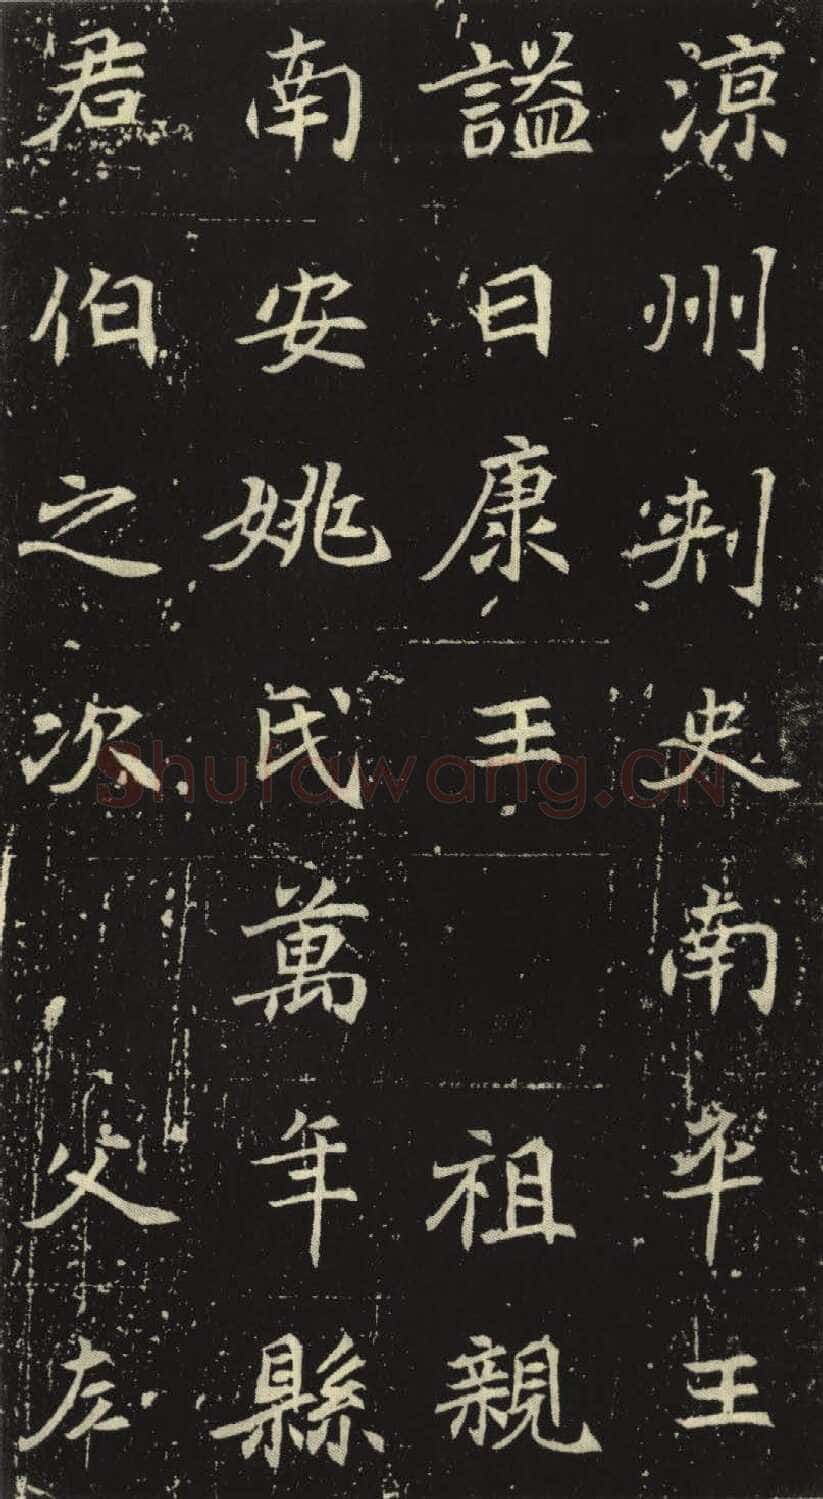 涼州刺史南平王
謚曰康王 祖親
南安姚氏萬年縣
君伯之次 父左
Shufawang.CN